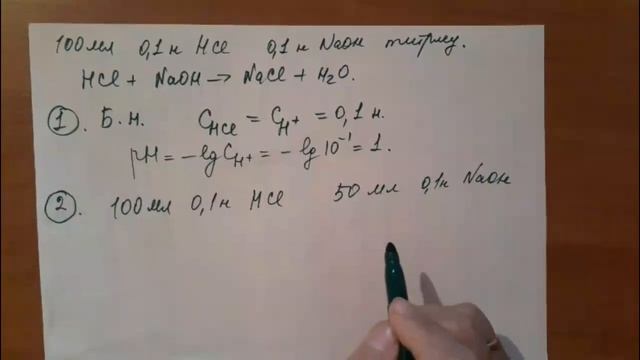 100мл 0,1н HCl 0,1н NaOH титрлеу.
HCl + NaOH → NaCl + H₂O.
① . Б.н. C_HCl = C_H⁺ = 0,1 н.
pH = −lg C_H⁺ = −lg 10⁻¹ = 1.
② . 100мл 0,1н HCl 50 мл 0,1н NaOH